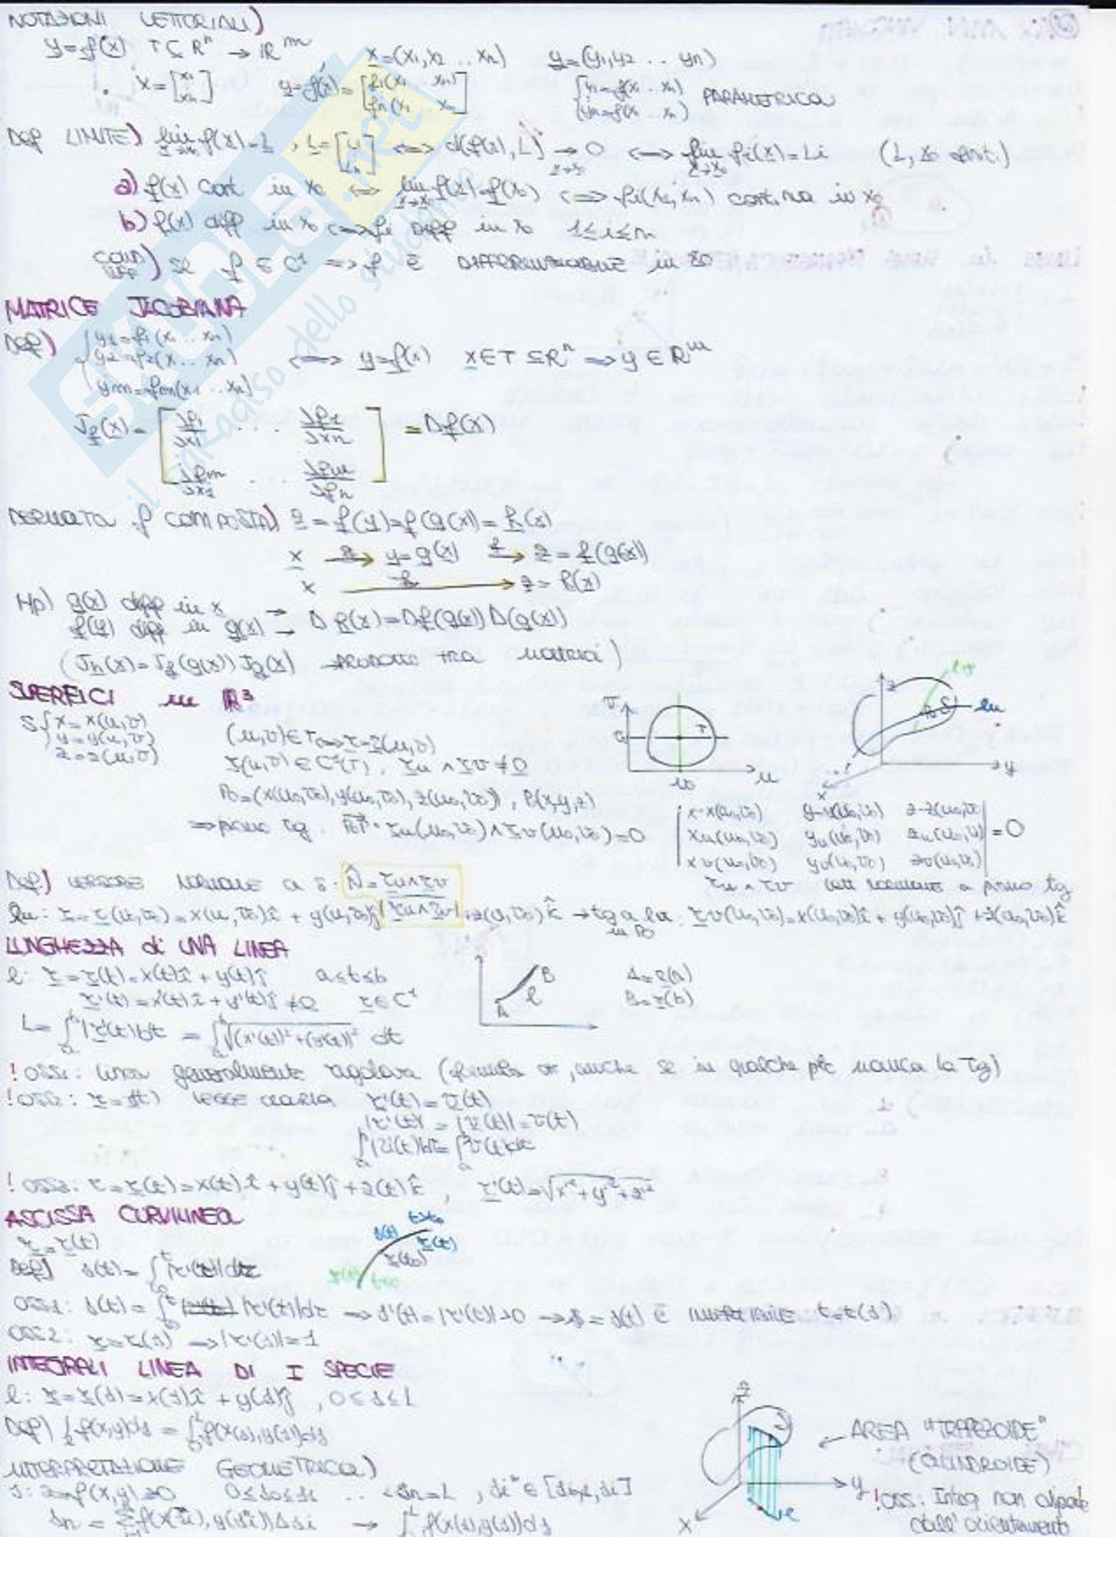 NOTAZIONI VETTORIALI)
y=f(x) T⊆R^n → R^m x=(x1,x2 .. xn) y=(y1,y2 ... yn)
x=[x1 xn] y=f(x)=[f1(x1 xn) fn(x1 xn)] {y1=f(x1 .. xn) ym=f(x1 .. xn) PARAMETRICA
Def LIMITE) lim f(x)=L , L=[L1 Ln] <=> d(f(x), L) → 0 <=> lim fi(x)=Li (L, x0 ant.)
a) f(x) cont in x0 <=> lim f(x)=f(x0) <=> fi(x1,xn) continua in x0
b) f(x) diff in x0 <=> fi diff in x0 1≤i≤m
COND SUFF) se f ∈ C^1 => f è DIFFERENZIABILE in x0
MATRICE JACOBIANA
Def) {y1=f1(x1 .. xn) y2=f2(x1 .. xn) ym=fm(x1 .. xn) <=> y=f(x) x∈T⊆R^n => y∈R^m
Jf(x) = [∂f1/∂x1 ... ∂f1/∂xn ∂fm/∂x1 ... ∂fm/∂fn] = Df(x)
DERIVATA f COMPOSTA) z=f(y)=f(g(x))=h(x)
x → g y=g(x) → f z=f(g(x))
x → h z=h(x)
Hp) g(x) diff in x
f(y) diff in g(x) → D h(x)=Df(g(x)) D(g(x))
(Jh(x)=Jf(g(x)) Jg(x) → PRODOTTO TRA MATRICI)
SUPERFICI in R^3
S {x=x(u,v) y=y(u,v) z=z(u,v) (u,v)∈T → r=r(u,v)
r(u,v)∈C^1(T), ru ∧ rv ≠ 0
P0=(x(u0,v0), y(u0,v0), z(u0,v0)), P(x,y,z)
=> piano tg. P0P · ru(u0,v0) ∧ rv(u0,v0)=0
|x-x(u0,v0) y-y(u0,v0) z-z(u0,v0)
xu(u0,v0) yu(u0,v0) zu(u0,v0)
xv(u0,v0) yv(u0,v0) zv(u0,v0)| =0
Def) VERSORE NORMALE a S: N̂ = ru∧rv / |ru∧rv|
ru ∧ rv vett normale a piano tg
lu: r=r(u,v0)=x(u,v0)î + y(u,v0)ĵ + z(u,v0)k̂ → tg a lu in P0
LUNGHEZZA di UNA LINEA
l: r=r(t)=x(t)î + y(t)ĵ a≤t≤b
r'(t)=x'(t)î + y'(t)ĵ ≠0 r∈C^1
A=r(a)
B=r(b)
L=∫|r'(t)|dt = ∫√(x'(t))²+(y'(t))² dt
! OSS1: linea generalmente regolare (formula ok, anche se in qualche pto manca la Tg)
! OSS2: r=r(t) LEGGE ORARIA r'(t)=v(t)
|r'(t)| = |v(t)|=v(t)
∫|r'(t)|dt=∫v(t)dt
! OSS3: r=r(t)=x(t)î + y(t)ĵ + z(t)k̂ , r'(t)=√x'²+y'²+z'²
ASCISSA CURVILINEA
r=r(t)
Def) s(t)=∫|r'(τ)|dτ
s(t) t>t0 r(t) r(t0) t<t0
OSS1: s(t)=∫ |r'(τ)|dτ → s'(t)=|r'(t)|>0 → s=s(t) è INVERTIBILE t=t(s)
OSS2: r=r(s) → |r'(s)|=1
INTEGRALI LINEA DI I SPECIE
l: r=r(s)=x(s)î + y(s)ĵ , 0≤s≤L
Def) ∫f(x,y)ds = ∫f(x(s),y(s))ds
INTERPRETAZIONE GEOMETRICA)
AREA "TRAPEZOIDE"
(CILINDROIDE)
S: z=f(x,y)≥0 0≤s0≤s1 .. <sn=L , si*∈[si-1,si]
sn = Σf(x(si*),y(si*))Δsi → ∫f(x(s),y(s))ds
! OSS: Integ non dipende
dall'orientamento